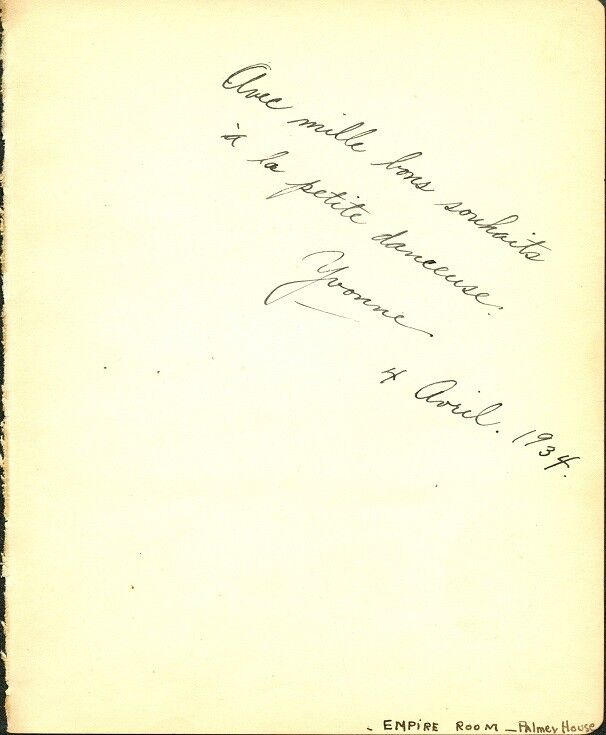 Avec mille bons souhaits
à la petite danceuse.
Yvonne
4 Avril. 1934.
- EMPIRE ROOM - Palmer House